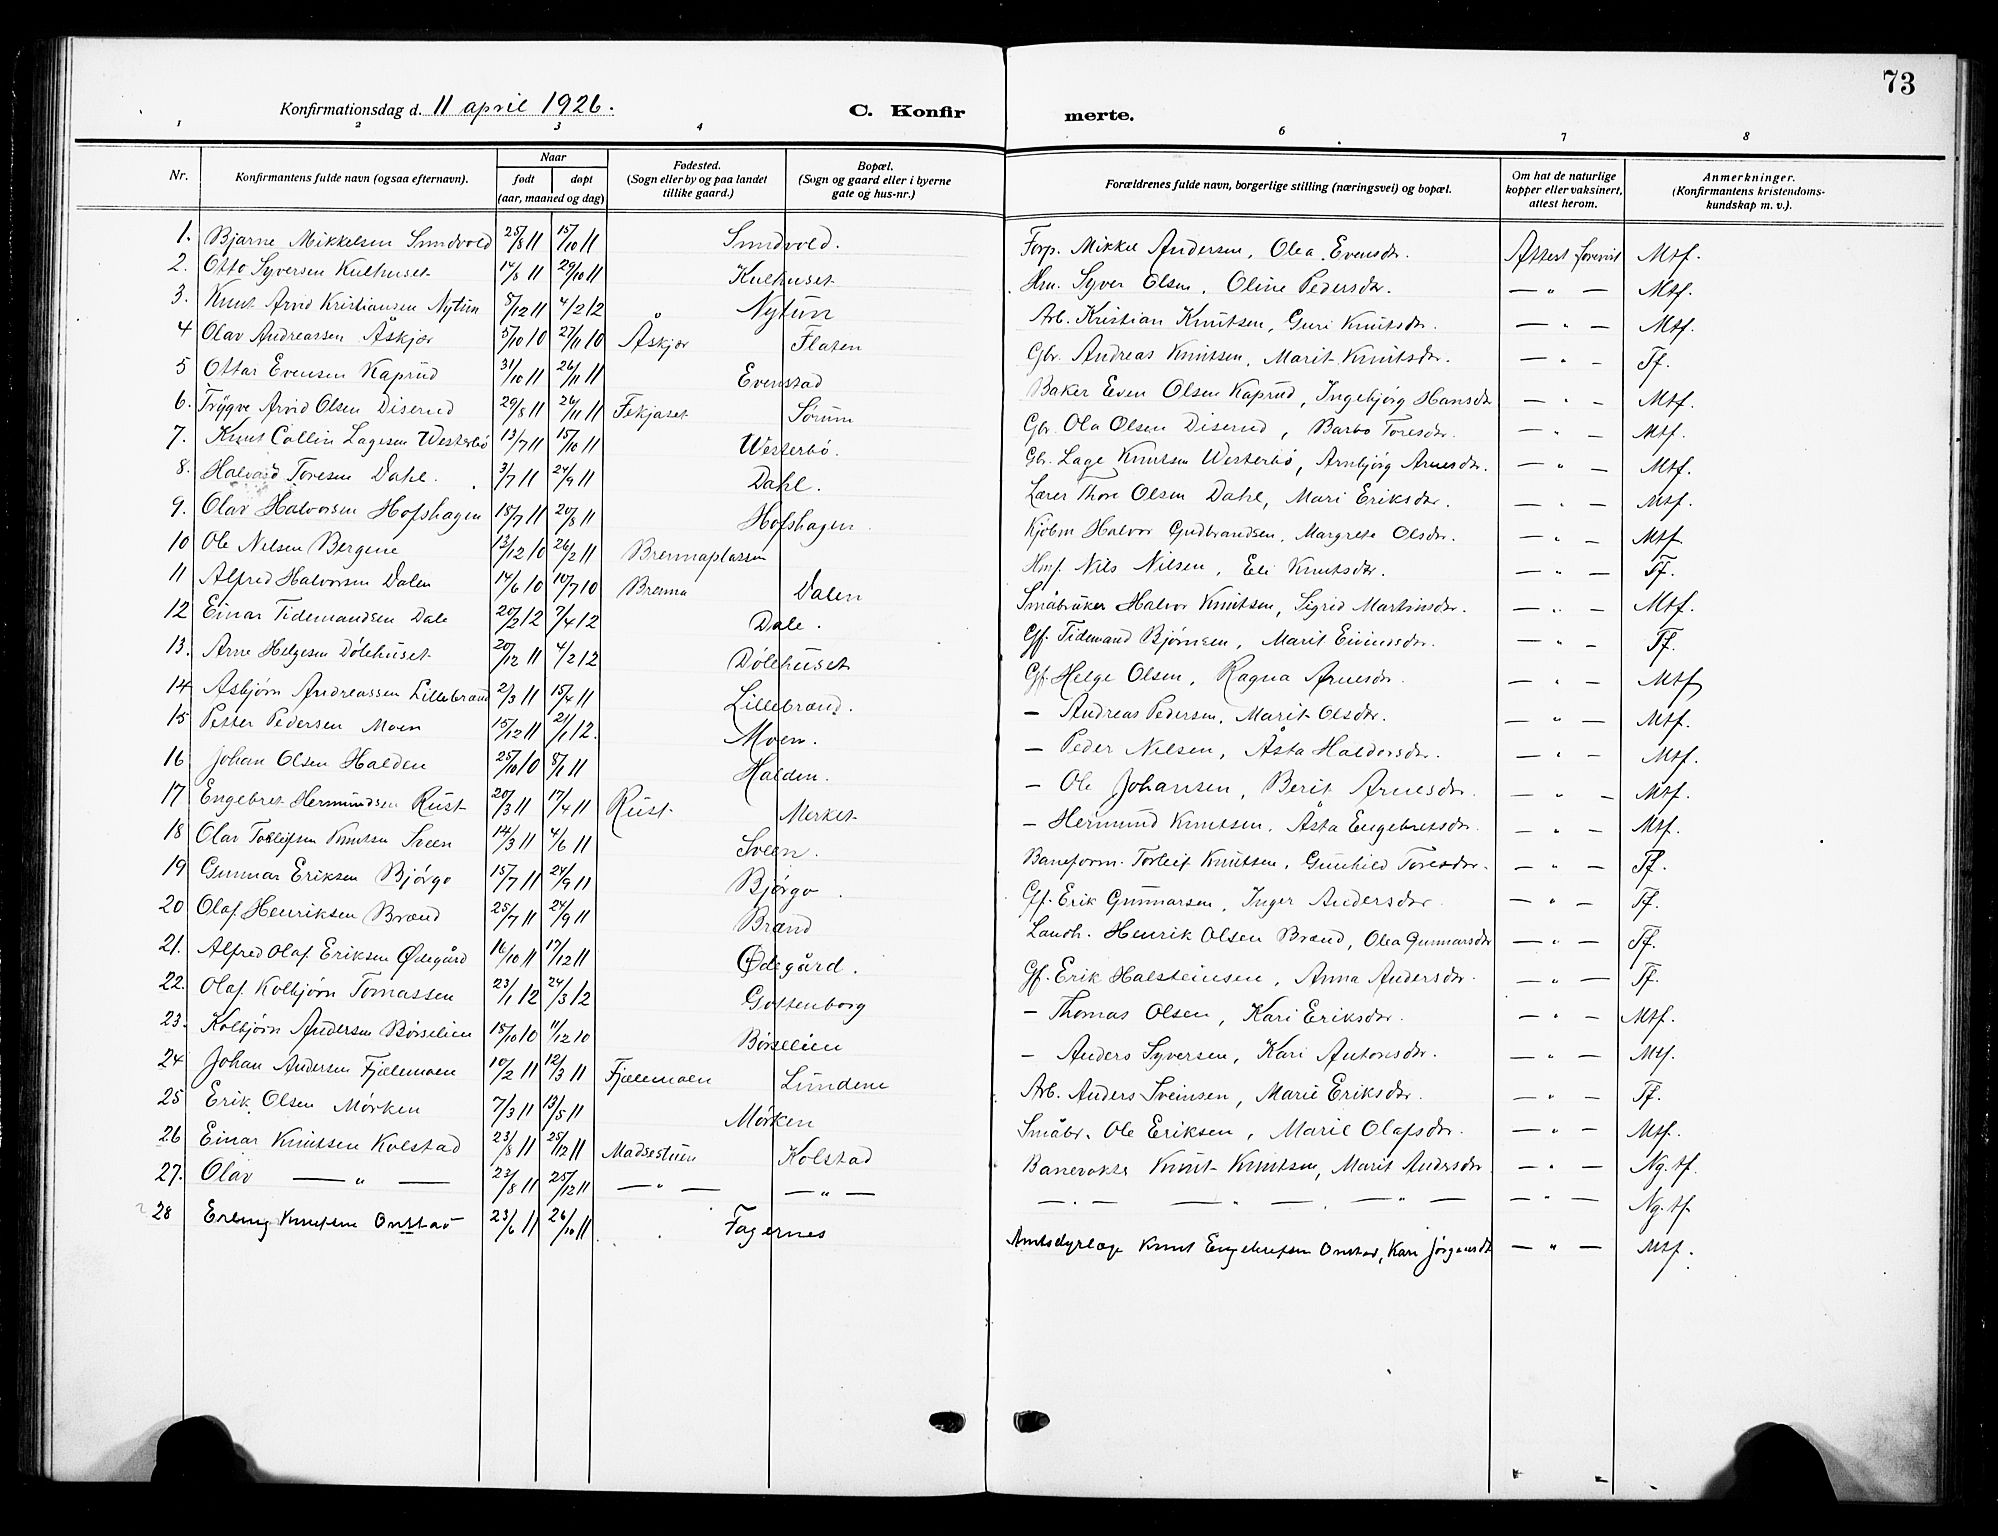 73
Konfirmationsdag d. 11 april 1926.
C. Konfir merte.
1 2 3 4 6 7 8
Nr. Konfirmantens fulde navn (ogsaa efternavn). Naar født døpt (aar, maaned og dag) Fødested. (Sogn eller by og paa landet tillike gaard.) Bopæl. (Sogn og gaard eller i byerne gate og hus-nr.) Forældrenes fulde navn, borgerlige stilling (næringsvei) og bopæl. Om hat de naturlige kopper eller vaksinert, attest herom. Anmerkninger. (Konfirmantens kristendoms-kundskap m. v.).
1. Bjarne Mikkelsen Sundvold 25/8 11 15/10 11 Sundvold. Forp. Mikkel Andersen, Olea Evensdr. Attest forevist Mtf.
2. Otto Syversen Kulhuset 14/8 11 29/10 11 Kulhuset Hm. Syver Olsen, Oline Pedersdr. — " — Mtf.
3. Knut Arvid Kristiansen Nytun 5/12 11 4/2 12 Nytun Arb. Kristian Knutsen, Guri Knutsdr. — " — Mtf.
4 Olav Andreassen Åskjær 5/10 10 27/11 10 Åskjær Flaten Gbr. Andreas Knutsen, Marit Knutsdr. — " — Tf.
5 Ottar Evensen Kaprud 31/10 11 26/11 11 Evenstad Baker Even Olsen Kaprud, Ingebjørg Hansdr — " — Mtf.
6. Trygve Arvid Olsen Diserud 29/8 11 26/11 11 Fekjaset Sørum Gbr. Ola Olsen Diserud, Barbo Toresdr. — " — Mtf.
7. Knut Collin Lagesen Westerbø 13/7 11 15/10 11 Westerbø. Gbr. Lage Knutsen Westerbø, Arnbjørg Arnesdr. — " — Mtf.
8. Halvard Toresen Dahl. 3/7 11 24/9 11 Dahl. Lærer Thore Olsen Dahl, Mari Eriksdr. — " — Mtf.
9. Olav Halvorsen Hofshagen 18/7 11 20/8 11 Hofshagen. Kjøbm Halvor Gudbrandsen, Margrete Olsdr. — " — Mtf
10 Ole Nilsen Bergene 13/12 10 26/2 11 Brennaplassen Hmf. Nils Nilsen, Eli Knutsdr. — " — Tf.
11 Alfred Halvorsen Dalen 14/6 10 10/7 10 Brenna Dalen Småbruker Halvor Knutsen, Sigrid Martinsdr. — " — Mtf.
12 Einar Tidemandsen Dale 20/2 12 7/4 12 Dale. Gf. Tidemand Bjørnsen, Marit Eivindsdr. — " — Tf.
13. Arne Helgesen Dølehuset 20/12 11 4/2 12 Dølehuset Gf. Helge Olsen, Ragna Arnesdr. — " — Mtf
14 Asbjørn Andreassen Lillebrand 2/3 11 15/4 11 Lillebrand. — Andreas Pedersen, Marit Olsdr. — " — Mtf.
15 Petter Pedersen Moen 15/12 11 21/1 12. Moen. — Peder Nilsen, Åsta Haldorsdr — " — Mtf.
16 Johan Olsen Halden 25/10 10 8/1 11 Halden. — Ole Johansen, Berit Arnesdr. — " — Mtf.
17 Engebret Hermundsen Rust 20/3 11 17/4 11 Rust Merket — Hermund Knutsen, Åsta Engebretsdr. — " — Mtf.
18 Olav Tolleifsen Knutsen Sveen 14/3 11 4/6 11 Sveen. Baneform. Torleif Knutsen, Gunhild Toresdr. — " — Tf.
19 Gunnar Eriksen Bjørgo 15/7 11 24/9 11 Bjørgo. Gf. Erik Gunnarsen, Inger Andersdr. — " — Tf.
20 Olaf Henriksen Brænd 25/7 11 24/9 11 Brænd Landh. Henrik Olsen Brænd, Olea Gunnarsdr — " — Tf.
21. Alfred Olaf Eriksen Ødegård 16/10 11 17/12 11 Ødegård. Gf. Erik Halsteinsen, Anna Andersdr. — " — Tf.
22. Olaf Kolbjørn Tomassen 23/1 12 24/3 12 Gottenborg — Thomas Olsen, Kari Eriksdr. — " — Mtf.
23. Kolbjørn Andersen Børselien 15/10 10 11/12 10 Børselien — Anders Syversen, Kari Antonsdr. — " — Mtf.
24 Johan Andersen Fjælemoen 10/2 11 12/3 11 Fjælemoen Lundene Arb. Anders Sveinsen, Marie Eriksdr. — " — Tf.
25 Erik Olsen Mørken 7/3 11 13/5 11 Mørken Småbr. Ole Eriksen, Marie Olafsdr. — " — Mtf.
26 Einar Knutsen Kolstad 23/8 11 25/12 11 Madsestuen Kolstad Banevokter Knut Knutsen, Marit Andersdr — " — Ng. tf.
27. Olav — " — 23/8 11 25/12 11 — " — — " — — " — — " — — " — — " — Ng. tf
28 Erling Knutsen Onstad 23/6 11 26/10 11 Fagernes Amtsdyrlæge Knut Engebretsen Onstad, Kari Jørgensdr — " — Mtf.